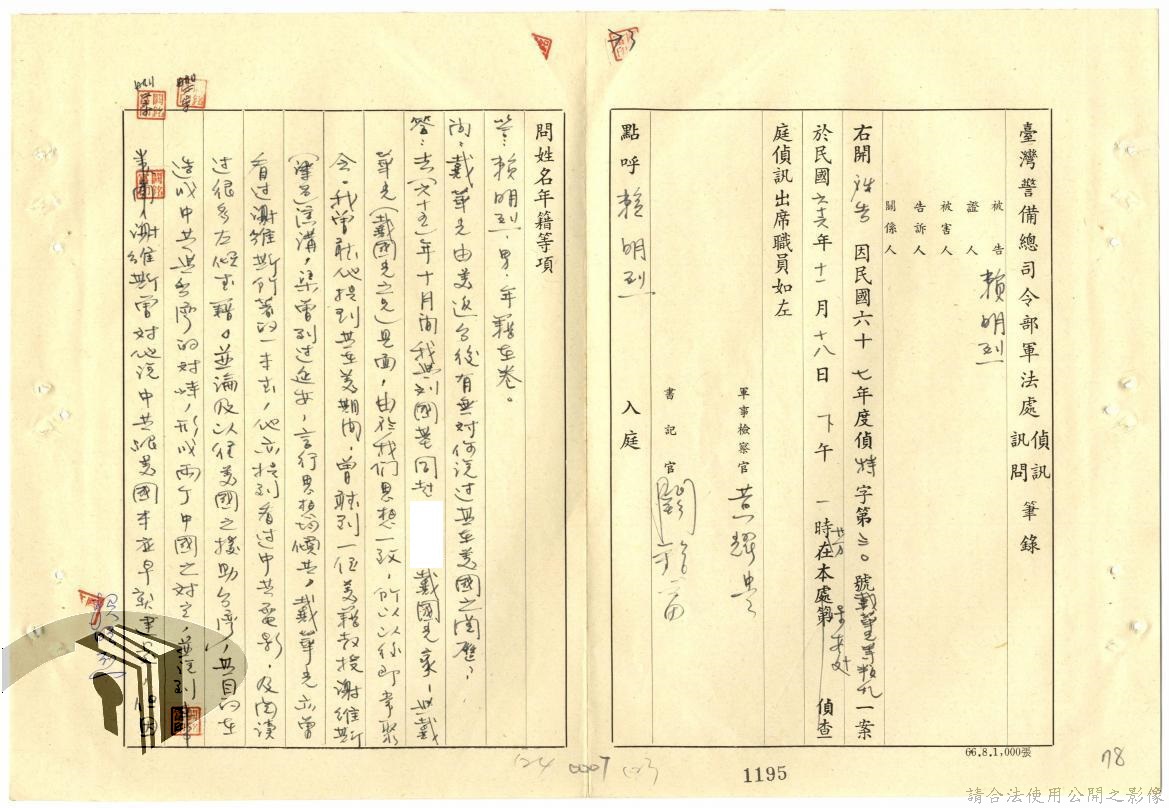 臺灣警備總司令部軍法處偵訊訊問筆錄
被告 賴明烈
證人
被害人
告訴人
關係人
右開被告因民國六十七年度偵特字第三〇號戴華光等叛亂一案
於民國六十六年十一月十八日下午一時廿分在本處第 偵查
庭偵訊出席職員如左
軍事檢察官
書記官
點呼 賴明烈 入庭
問姓名年籍等項
答:賴明烈,男,年籍在卷。
問:戴華光由美返台後有無對你說过其在美國之
答:去(六十五)年十月間我與劉國基同赴 戴國光家,與戴
華光(戴國光之兄)見面,由於我们思想一致,所以以後即常聚
会。我曾聽他提到其在美期間,曾聽到一位美籍教授謝維斯
演講,渠曾到过延安,言行思想均傾共,戴華光亦曾
看过謝維斯所著的一本書,他亦提到看过中共電影,及閱讀
过很多左傾書籍。並論及以往美國之援助台灣,其目的在
造成中共與台灣的对峙,形成兩个中國之对立,並說到
謝維斯曾对他說中共跟美國本應早就建交
66.8.1,000張
1195
78
124 0007 103
請合法使用公開之影像